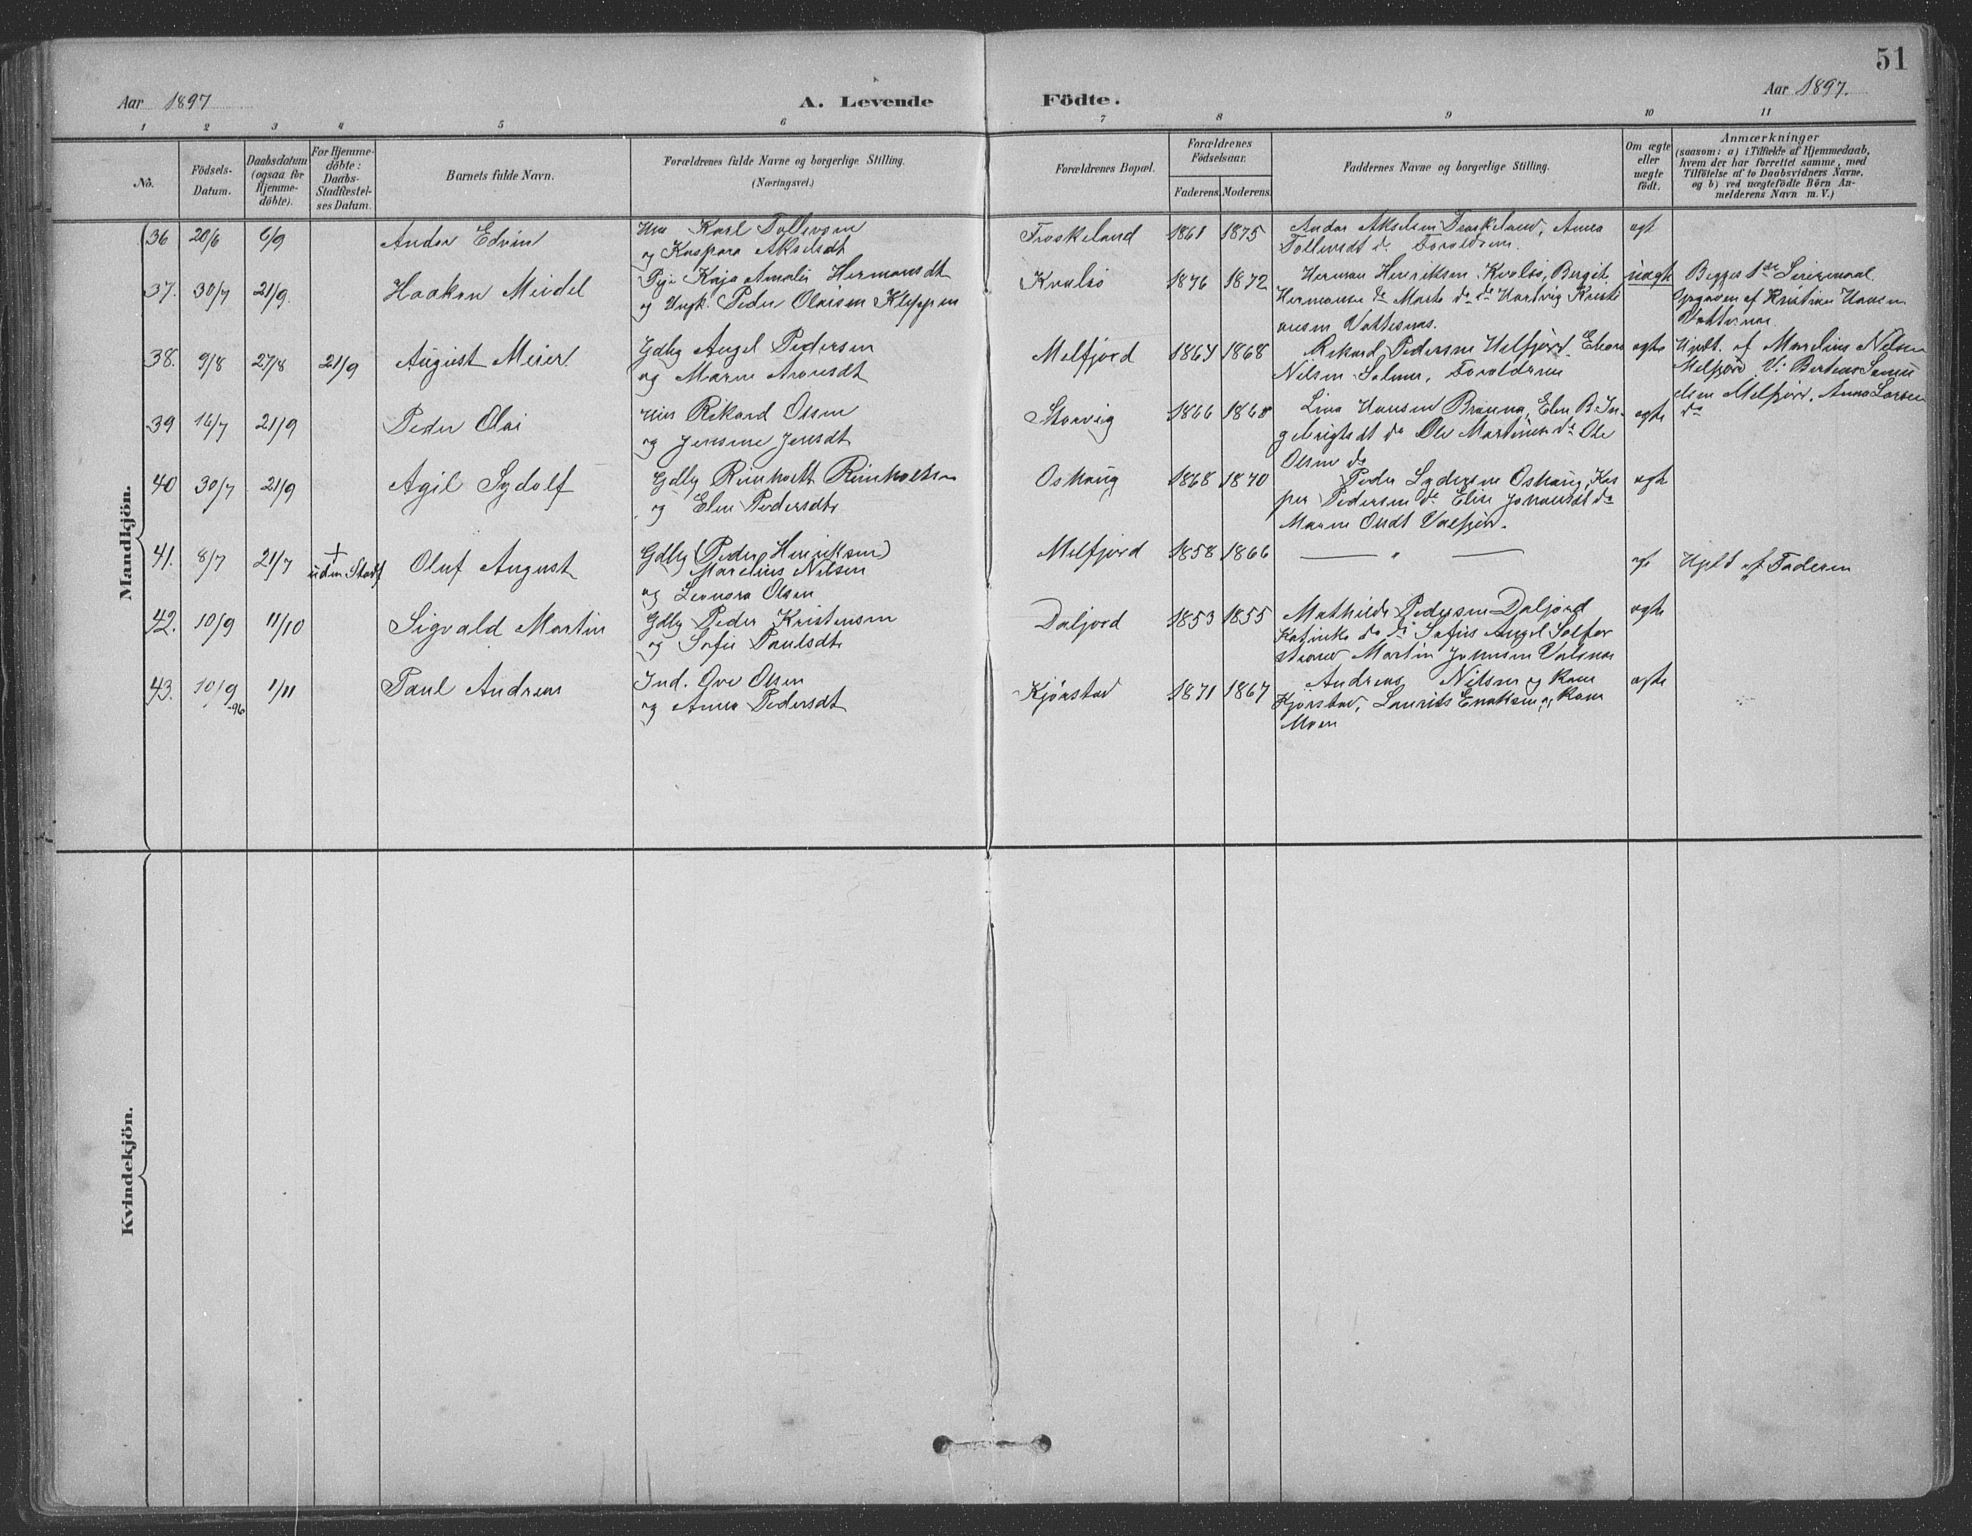 51
Aar 1897
A. Levende Födte.
Aar 1897.
1 2 3 4 5 6 7 8 9 10 11
No.
Födsels-
Datum.
Daabsdatum
(ogsaa for
Hjemme-
döbte).
For Hjemme-
döbte:
Daabs-
Stadfæstel-
ses Datum.
Barnets fulde Navn.
Forældrenes fulde Navne og borgerlige Stilling.
(Næringsvei.)
Forældrenes Bopæl.
Forældrenes
Födselsaar.
Faderens. Moderens.
Faddernes Navne og borgerlige Stilling.
Om ægte
eller
uægte
födt.
Anmærkninger
(saasom: a) i Tilfælde af Hjemmedaab,
hvem der har forrettet samme, med
Tilföielse af to Daabsvidners Navne,
og b) ved uægtefödte Börn An-
melderens Navn m. V.)
Mandkjön.
36 20/6 6/9 Andor Edvin
Karl Tollevsen
og Kaspara Akselsdt
Froskeland 1861 1875
Andor Akselsen Froskeland, Anna
Tollevsdt do Foreldrene.
egt
37. 30/7 21/9. Haakon Meidel
Pige Kaja Amalie Hermansdt
og Ungk. Peder Olaisen Kleppen
Kvalsö 1876 1872
Herman Henriksen Kvalsö, Bergit
Hermansen do Marte do do Hartvig Kristi
ansen Vottesnes.
uægte
Begges 1ste Leiermaal
Opgaven af Kristian Hansen
38. 9/8 27/8 21/9 August Meier
Gdbg Angel Pedersen
og Maren Aronsdt
Melfjord 1864 1868
Rikard Pedersen Melfjord
Nilsen Foreldrene
egte
Hjdt. af Marelius Nilsen
Melfjord V:
Melfjord, Anna Larsen
do
39 16/7 21/9 Peder Olai
Rikard Olsen
og Jensine Jensdt
Storvig 1866 1868
Lina Hansen Elen B. In-
gebrigtsdt do Ole Martinsen do Ole
Olsen do
egte
40 30/7 21/9 Agil Sydolf
Gdbg Reinholt Reinholtsen
og Elen Pedersdt
Oshaug 1868 1870
Peder Sydersen Oshaug, Kas-
per Pedersen do Elise Johansdt do
Maren
egte
41. 8/7 21/7 † uden Stadf Oluf August
Gdbg (Peder Henriksen)
Marelius Nilsen
og Leonora Olsen
Melfjord 1858 1866
— " —
Hjdt af Faderen
42. 10/9 11/10 Sigvald Martin
Gdbg Peder Kristensen
og Sofie Paulsdt
Daljord 1853 1855
Mathilde Pedersen Daljord
Katinka do do Sofus Angel
Martin Johnsen Valsnes
egte
43. 10/9 -96 1/11 Paul Andreas
Ind. Ove Olsen
og Anna Pedersdt
Kjörstad 1871 1867
Andreas Nilsen og Kone
Kjörstad, Laurits Enoksen og Kone
Moen
egte
Kvindekjön.